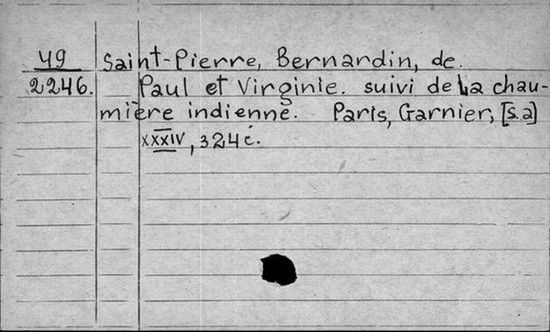 49 Saint-Pierre, Bernardin, de.
2246. Paul et Virginie. suivi de La chau-
mière indienne. Paris, Garnier, [s.a]
XXXIV, 324 c.